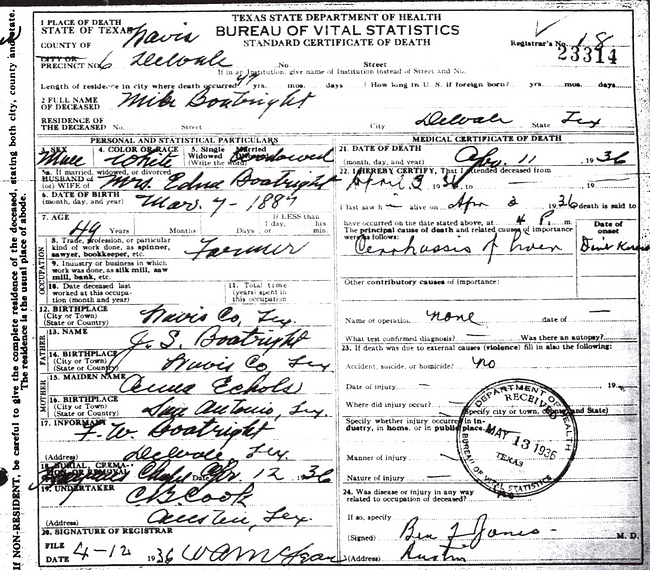 TEXAS STATE DEPARTMENT OF HEALTH
BUREAU OF VITAL STATISTICS
STANDARD CERTIFICATE OF DEATH
1 PLACE OF DEATH
STATE OF TEXAS
COUNTY OF Travis
Registrar's No. 18
23314
CITY OR
PRECINCT NO. 6 Delvale No. Street
If in an Institution, give name of institution instead of Street and No.
Length of residence in city where death occurred 49 yrs. mos. days? How long in U. S. if foreign born? yrs. mos. days
2 FULL NAME
OF DECEASED Mike Boatright
RESIDENCE OF
THE DECEASED No. Street City Delvale State Tex
PERSONAL AND STATISTICAL PARTICULARS
3. SEX Male
4. COLOR OR RACE White
5. Single Married
Widowed Divorced
(Write the word)
5a. If married, widowed or divorced
HUSBAND OF
(or) WIFE OF Mrs. Edna Boatright
6. DATE OF BIRTH
(month, day, and year) Mar. 7 - 1887
7. AGE 49 Years Months Days
If LESS than
1 day, hrs.
or min.
OCCUPATION
8. Trade, profession, or particular
kind of work done, as spinner,
sawyer, bookkeeper, etc. Farmer
9. Industry or business in which
work was done, as silk mill, saw
mill, bank, etc.
10. Date deceased last
worked at this occupa-
tion (month and year)
11. Total time
(years) spent in
this occupation
12. BIRTHPLACE
(City or Town)
(State or Country) Travis Co, Tex.
FATHER
13. NAME J. S. Boatright
14. BIRTHPLACE
(City or Town)
(State or Country) Travis Co, Tex.
MOTHER
15. MAIDEN NAME Anna Echols
16. BIRTHPLACE
(City or Town)
(State or Country) San Antonio, Tex.
17. INFORMANT F. W. Boatright
(Address) Delvale Tex.
18. BURIAL, CREMA-
TION OR REMOVAL
Chapel Date Apr. 12 1936
19. UNDERTAKER C. B. Cook
(Address) Austin, Tex.
20. SIGNATURE OF REGISTRAR
FILE
DATE 4-12 1936
MEDICAL CERTIFICATE OF DEATH
21. DATE OF DEATH
(month, day, and year) Apr. 11 1936
22. I HEREBY CERTIFY, That I attended deceased from
April 3 1936, to 19
I last saw h alive on Apr 3 1936 death is said to
have occurred on the date stated above, at 4 P. m.
The principal cause of death and related causes of importance
were as follows:
Date of
onset
Cerrhassis of Liver
Other contributory causes of importance:
Name of operation none date of —
What test confirmed diagnosis? — Was there an autopsy? —
23. If death was due to external causes (violence) fill in also the following:
Accident, suicide, or homicide? no
Date of injury — 19
Where did injury occur?
(Specify city or town, county and State)
Specify whether injury occurred in in-
dustry, in home, or in public place.
Manner of injury —
Nature of injury —
DEPARTMENT OF HEALTH
RECEIVED
MAY 13 1936
TEXAS
BUREAU OF VITAL STATISTICS
24. Was disease or injury in any way
related to occupation of deceased?
If so, specify
(Signed) Ben F Jones M. D.
(Address) Austin
If NON-RESIDENT, be careful to give the complete residence of the deceased, stating both city, county and state.
The residence is the usual place of abode.